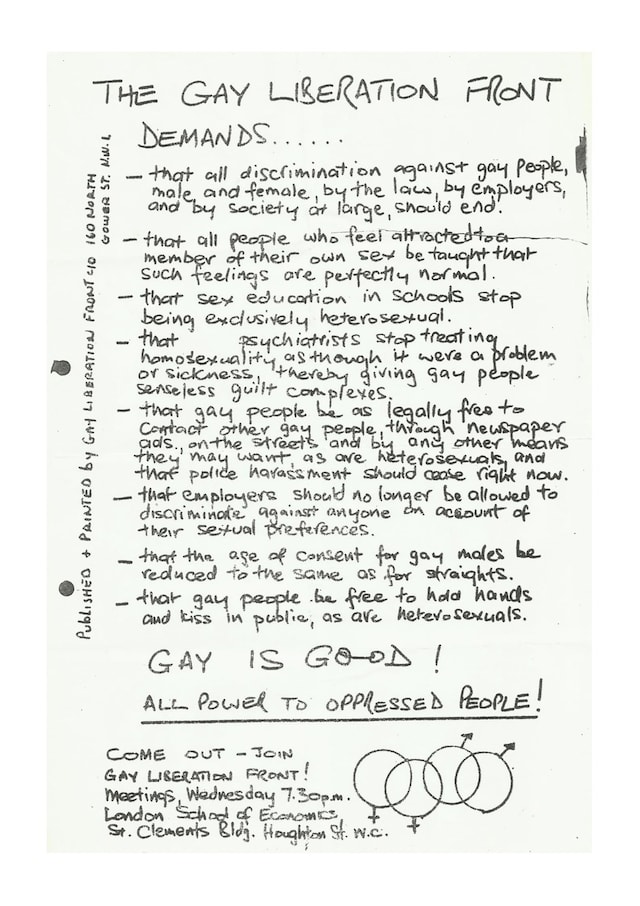 THE GAY LIBERATION FRONT
DEMANDS......
– that all discrimination against gay people,
male and female, by the law, by employers,
and by society at large, should end.
– that all people who feel attracted to a
member of their own sex be taught that
such feelings are perfectly normal.
– that sex education in schools stop
being exclusively heterosexual.
– that psychiatrists stop treating
homosexuality as though it were a problem
or sickness, thereby giving gay people
senseless guilt complexes.
– that gay people be as legally free to
contact other gay people, through newspaper
ads, on the streets and by any other means
they may want, as are heterosexuals, and
that police harassment should cease right now.
– that employers should no longer be allowed to
discriminate against anyone on account of
their sexual preferences.
– that the age of consent for gay males be
reduced to the same as for straights.
– that gay people be free to hold hands
and kiss in public, as are heterosexuals.
GAY IS GOOD!
ALL POWER TO OPPRESSED PEOPLE!
COME OUT – JOIN
GAY LIBERATION FRONT!
Meetings, Wednesday 7.30p.m.
London School of Economics,
St. Clements Bldg. Houghton St. W.C.
PUBLISHED + PRINTED by GAY LIBERATION FRONT c/o 160 NORTH
GOWER ST. N.W.1